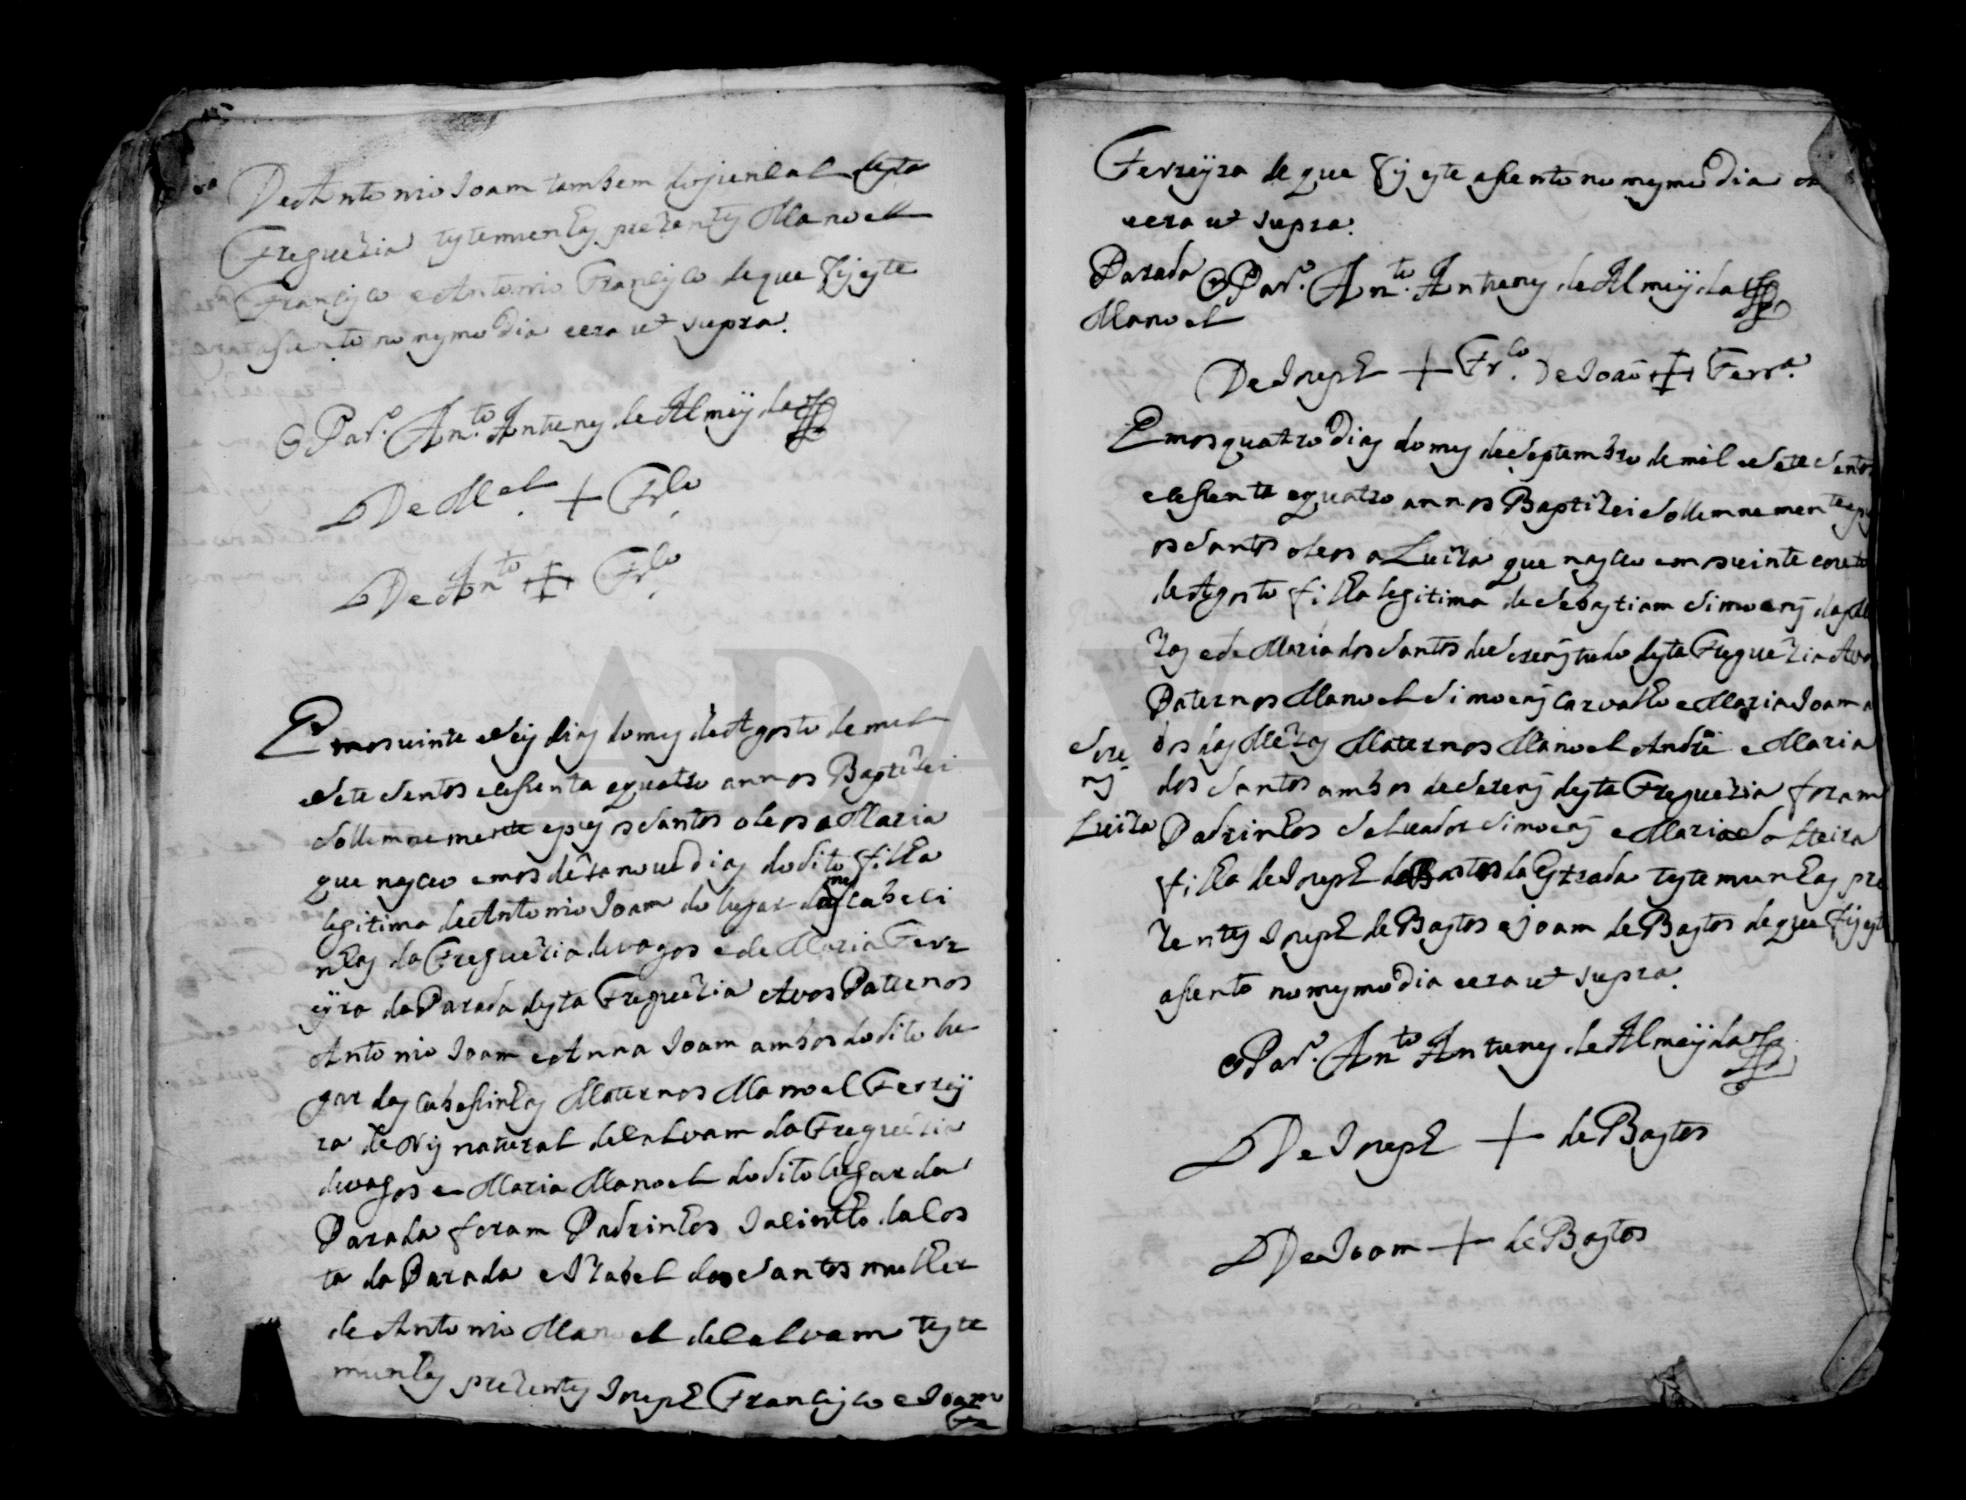 De Antonio Joam tambem do juncal desta
Freguezia testemunhas prezentes Manoel
Francisco e Antonio Francisco de que fis este
asento no mesmo dia e era ut supra.
O Par.º An.to Antunes de Almeyda
De M.el + Fr.co
De An.to + Fr.co
Em os vinte e seis dias do mes de Agosto de mil
e sete sentos e sesenta e quatro annos Baptizei
sollemnemente e pus os santos oleos a Maria
que nasceo em os dezanove dias do dito mes filha
legitima de Antonio Joam do lugar das Cabeci
nhas da Freguezia de vagos e de Maria Ferr
eyra da Parada desta Freguezia Avos Paternos
Antonio Joam e Anna Joam ambos do dito lu
gar das Cabesinhas Maternos Manoel Ferrey
ra natural de Calvam da Freguezia
de vagos e Maria Manoel do dito lugar da
Parada foram Padrinhos Jacintho da Cos
ta da Parada e Izabel dos Santos mulher
de Antonio Manoel de Calvam teste
munhas prezentes Joseph Francisco e Joam
Ferreyra de que fis este asento no mesmo dia e
era ut supra.
Parada
Manoel
O Par.º An.to Antunes de Almeyda
De Joseph + Fr.co De Joaõ + Ferr.a
Em os quatro dias do mes de Septembro de mil e sete sentos
e sesenta e quatro annos Baptizei sollemnemente e pus
os santos oleos a Luiza que nasceo em os vinte e oito
de Agosto filha legitima de Sebastiam Simoens das Me
zas e de Maria dos Santos de desta Freguezia Avos
Paternos Manoel Simoens Carvalho e Maria Joam
das Mezas Maternos Manoel Andre e Maria
dos Santos ambos de Sorens desta Freguezia foram
Sore
ns
Luiza
Padrinhos Salvador Simoens e Maria Solteira
filha de Joseph de Bastos da Estrada testemunhas pre
zentes Joseph de Bastos e Joam de Bastos de que fis este
asento no mesmo dia e era ut supra.
O Par.º An.to Antunes de Almeyda
De Joseph + de Bastos
De Joam + de Bastos
ADAVR